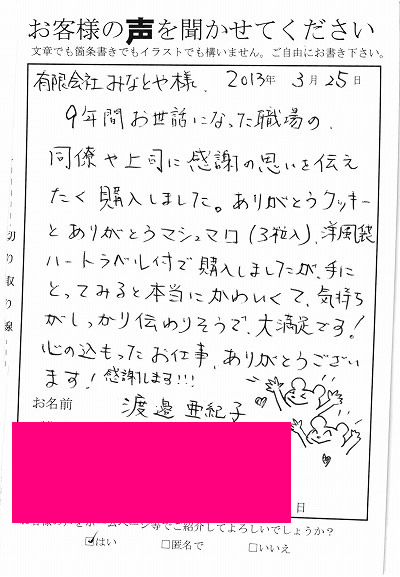 お客様の声を聞かせてください
文章でも箇条書きでもイラストでも構いません。ご自由にお書き下さい。
有限会社みなとや様. 2013年 3月 25日
9年間お世話になった職場の、
同僚や上司に感謝の思いを伝え
たく購入しました。ありがとうクッキー
とありがとうマシュマロ(3粒入)、洋風袋
ハートラベル付で購入しましたが、手に
とってみると本当にかわいくて、気持ち
がしっかり伝わりそうで、大満足です!
心の込もったお仕事、ありがとうござい
ます! 感謝します!!!
お名前 渡邉亜紀子
日
ご紹介してよろしいでしょうか?
☑はい □匿名で □いいえ
切り取り線